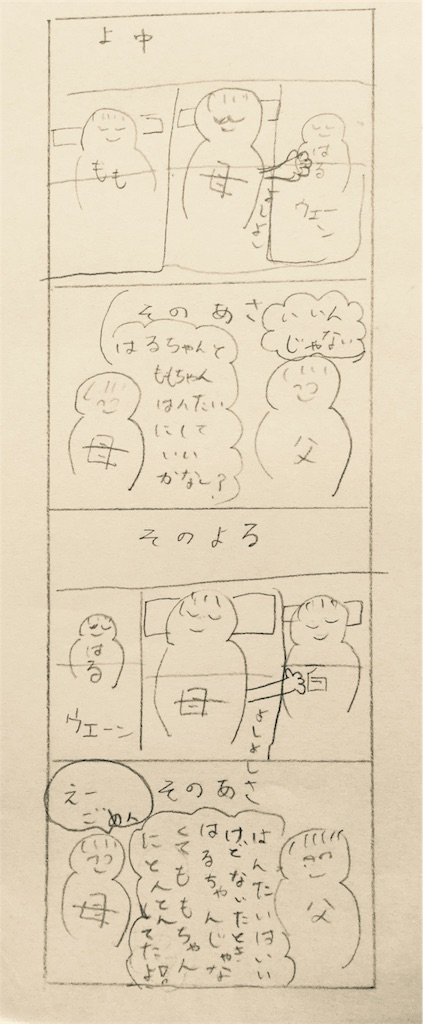 よ中
もも
母
はる
よしよし
ウエーン
そのあさ
はるちゃんと
ももちゃん
はんたい
にして
いい
かなー?
いいん
じゃない
母
父
そのよる
はる
ウエーン
母
よしよし
百
そのあさ
えー
ごめん
はんたいはいい
けどないたとき
はるちゃんじゃな
くてももちゃん
にとんとんしてたよ
母
父